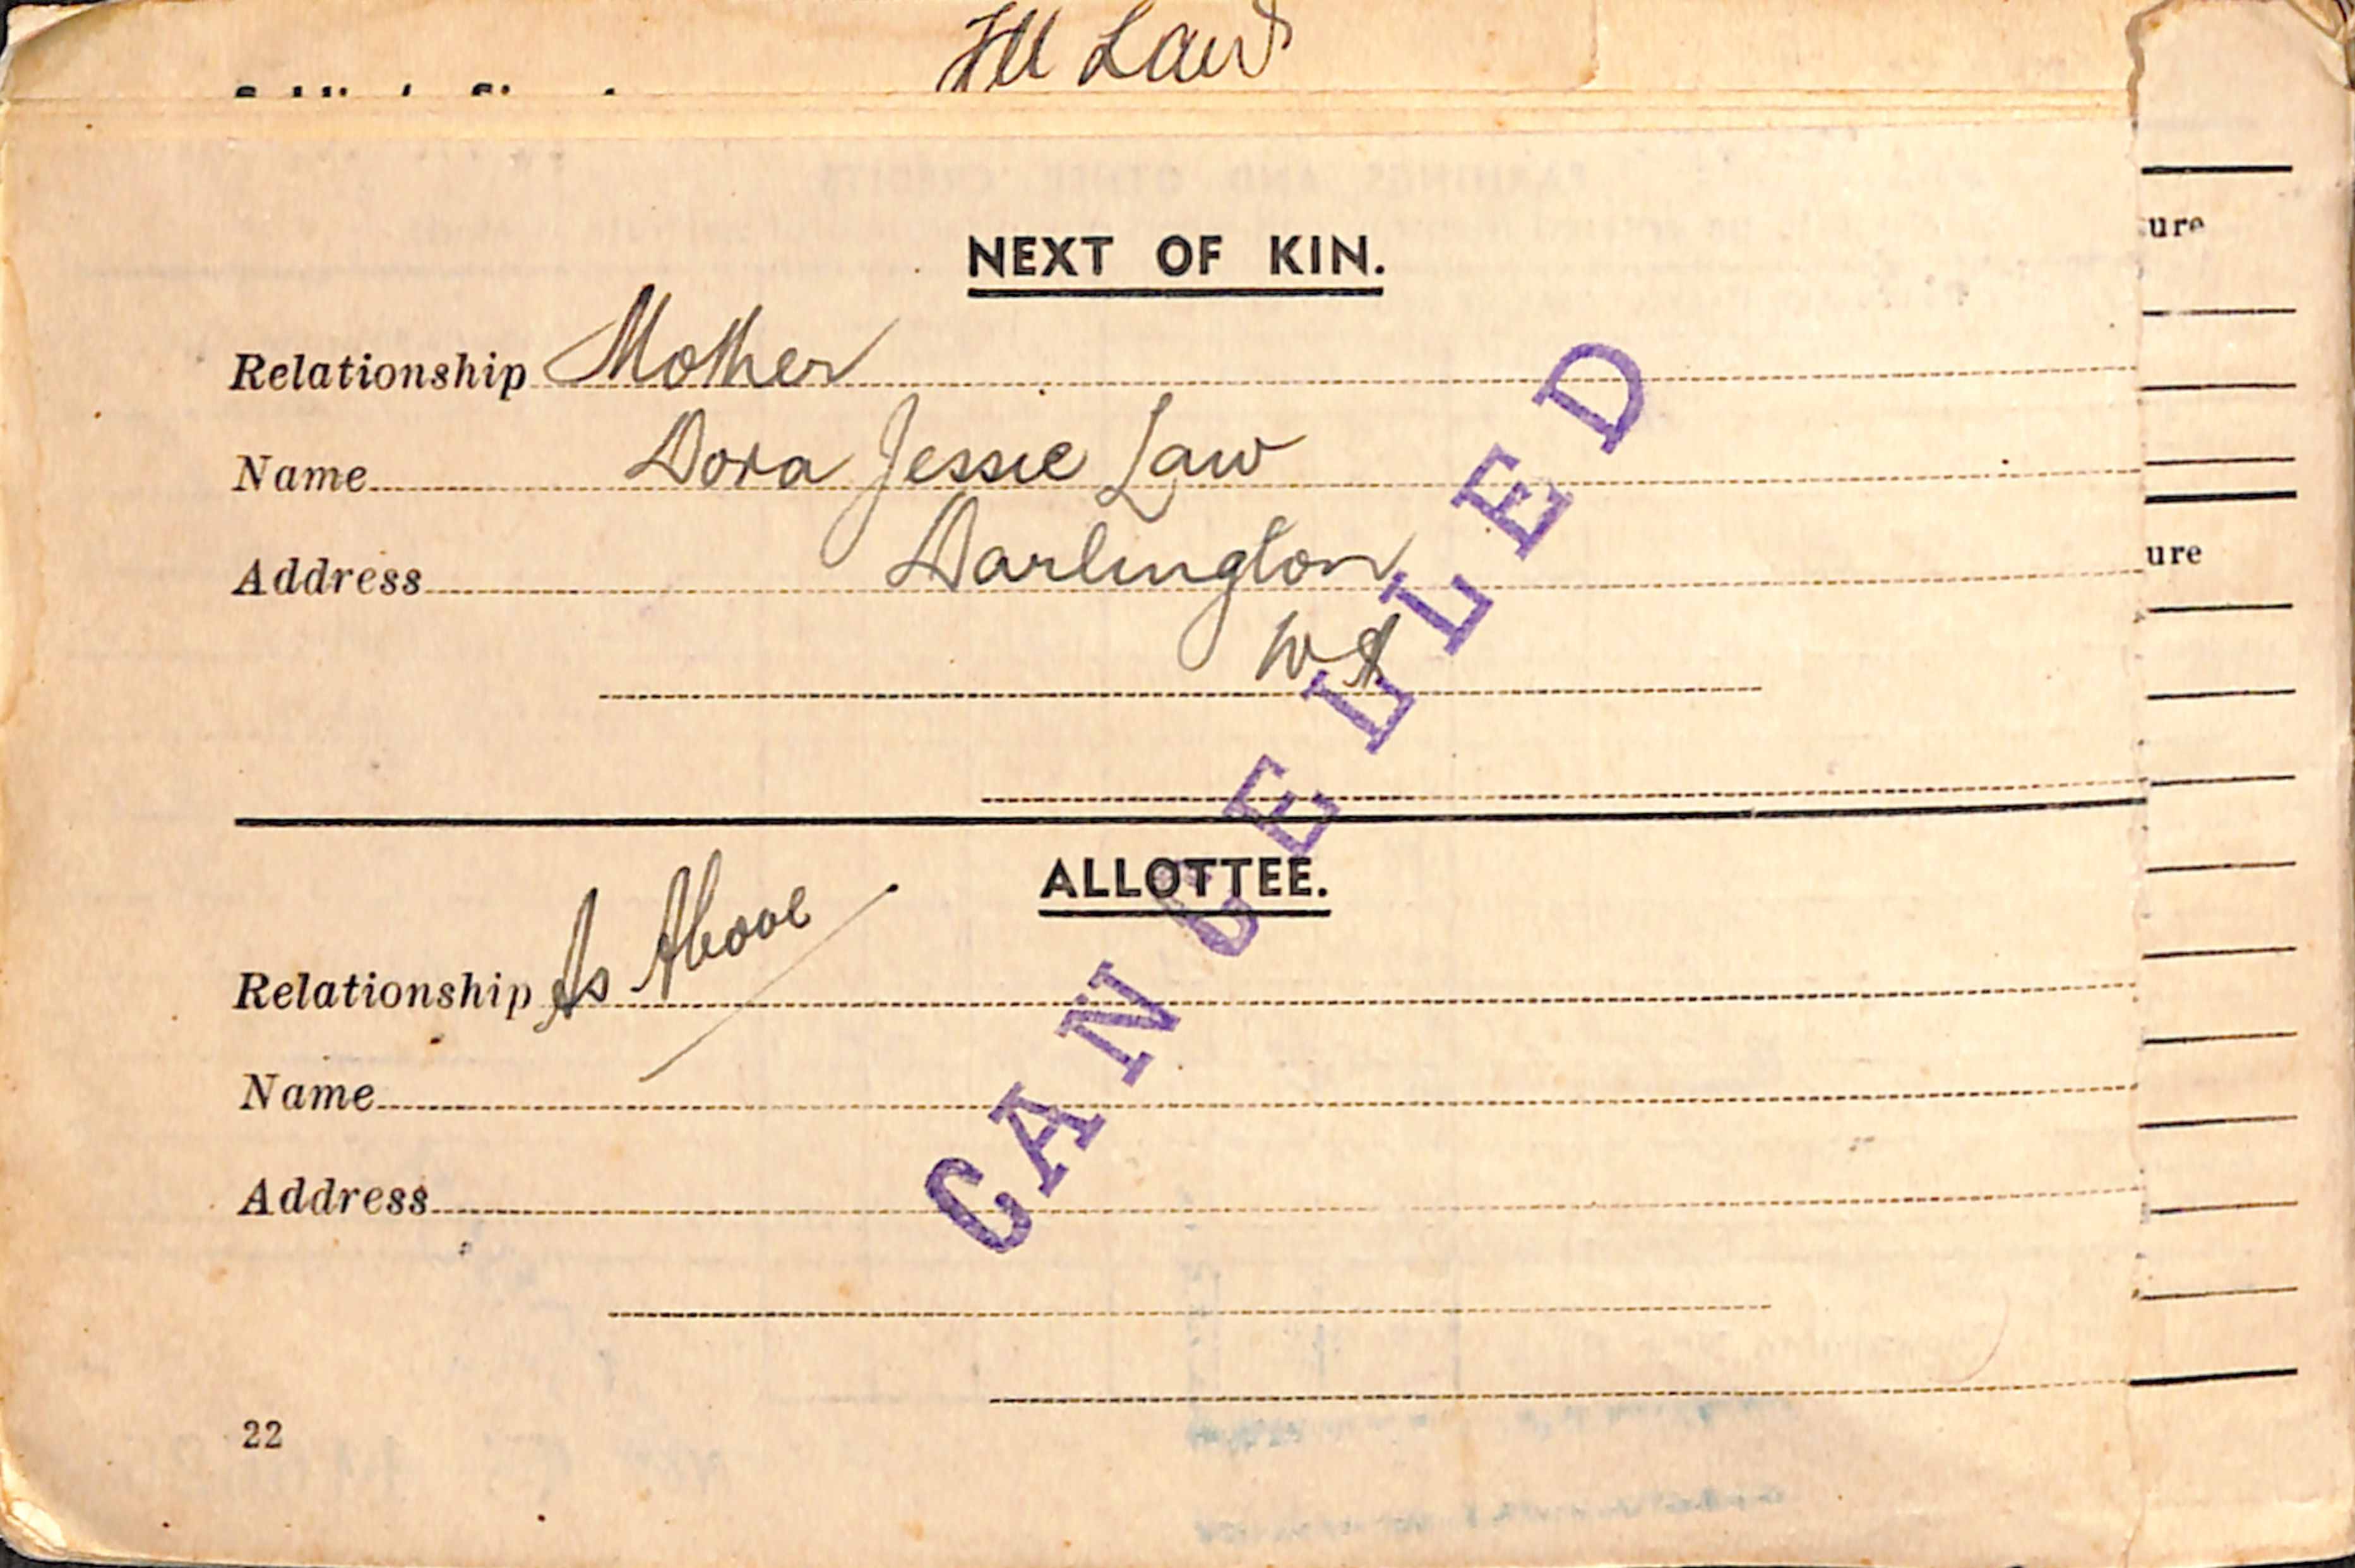 Law
NEXT OF KIN.
Relationship Mother
Name Dora Jessie Law
Address Darlington
W A
ALLOTTEE.
Relationship As Above
Name
Address
22
CANCELLED
ure
ure